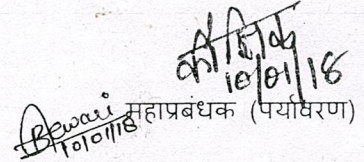 कौशिक
10/01/18
BRewari
10/01/18
महाप्रबंधक (पर्यावरण)